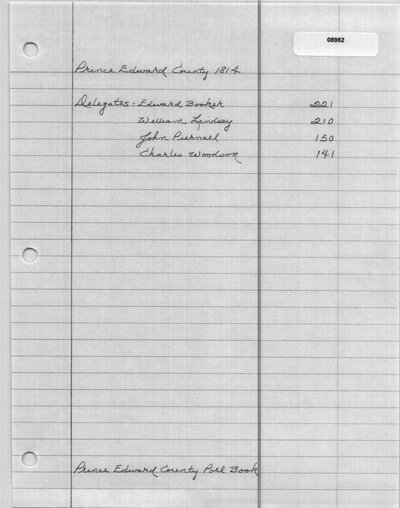 08982
Prince Edward County 1814
Delegates: Edward Booker 221
William Lindsey 210
John Purnall 150
Charles Woodson 141
Prince Edward County Poll Book